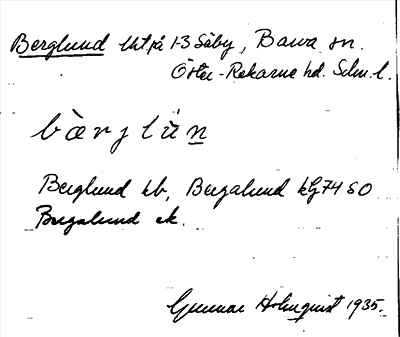 Berglund tht på 1-3 Säby, Barva sn.
Öster-Rekarne hd. Sdm. l.
bæ̀rjlùn
Berglund kb, Bergalund kG74SO
Bergalund ek.
Gunnar Holmquist 1935.